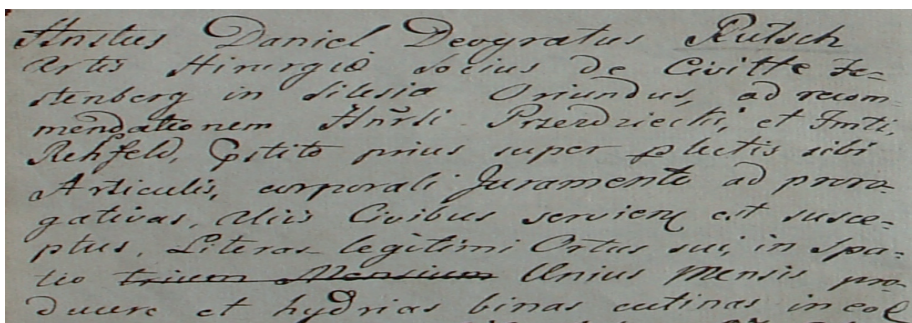 Hnstus Daniel Deogratus Rutsch
Artis Hirurgiæ Socius de Civitte Fe=
stenberg in Silesia Oriundus, ad recom=
mendationem Hnrsli Przerdziecki, et Imti,
Rehfeld, Pstito prius super plectis sibi
Articulis, corporali Juramento ad proro=
gativas, Aliis Civibus servien est susce=
ptus, Literas legitimi Ortus sui, in Spa=
tio trium Mensium Unius Mensis pro
ducere et hydrias binas cutinas in eol